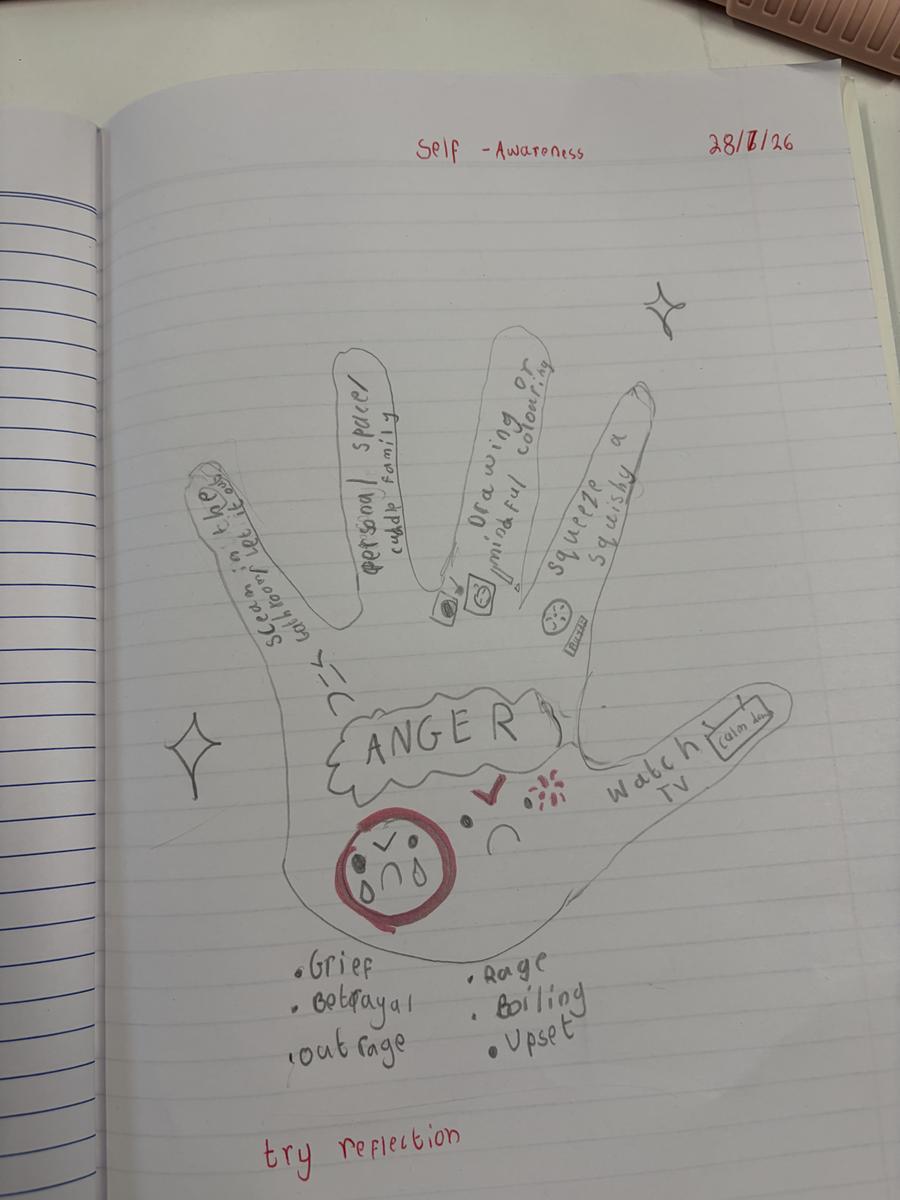 Self - Awareness
28/7/26
scream in the
bathroom/ let it out
personal space/
cuddle family
Drawing or
mindful colouring
squeeze a
squishy
ANGER
Watch
TV
Calm down
• Grief
• Betrayal
• outrage
• Rage
• Boiling
• Upset
try reflection